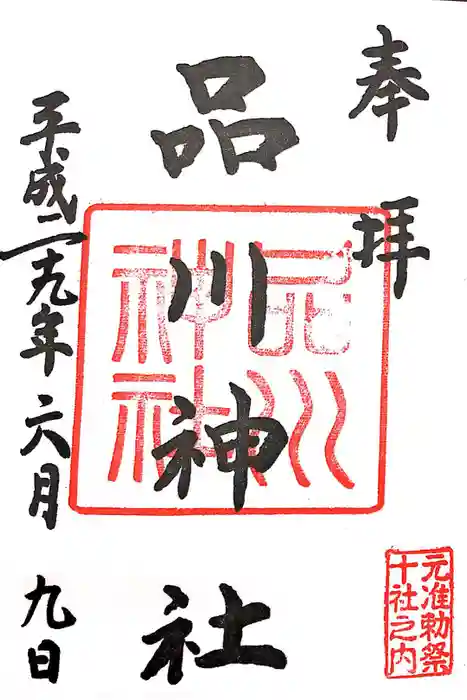 奉拝
品川神社
平成二十九年六月九日
品川
神社
元准勅祭
十社之内